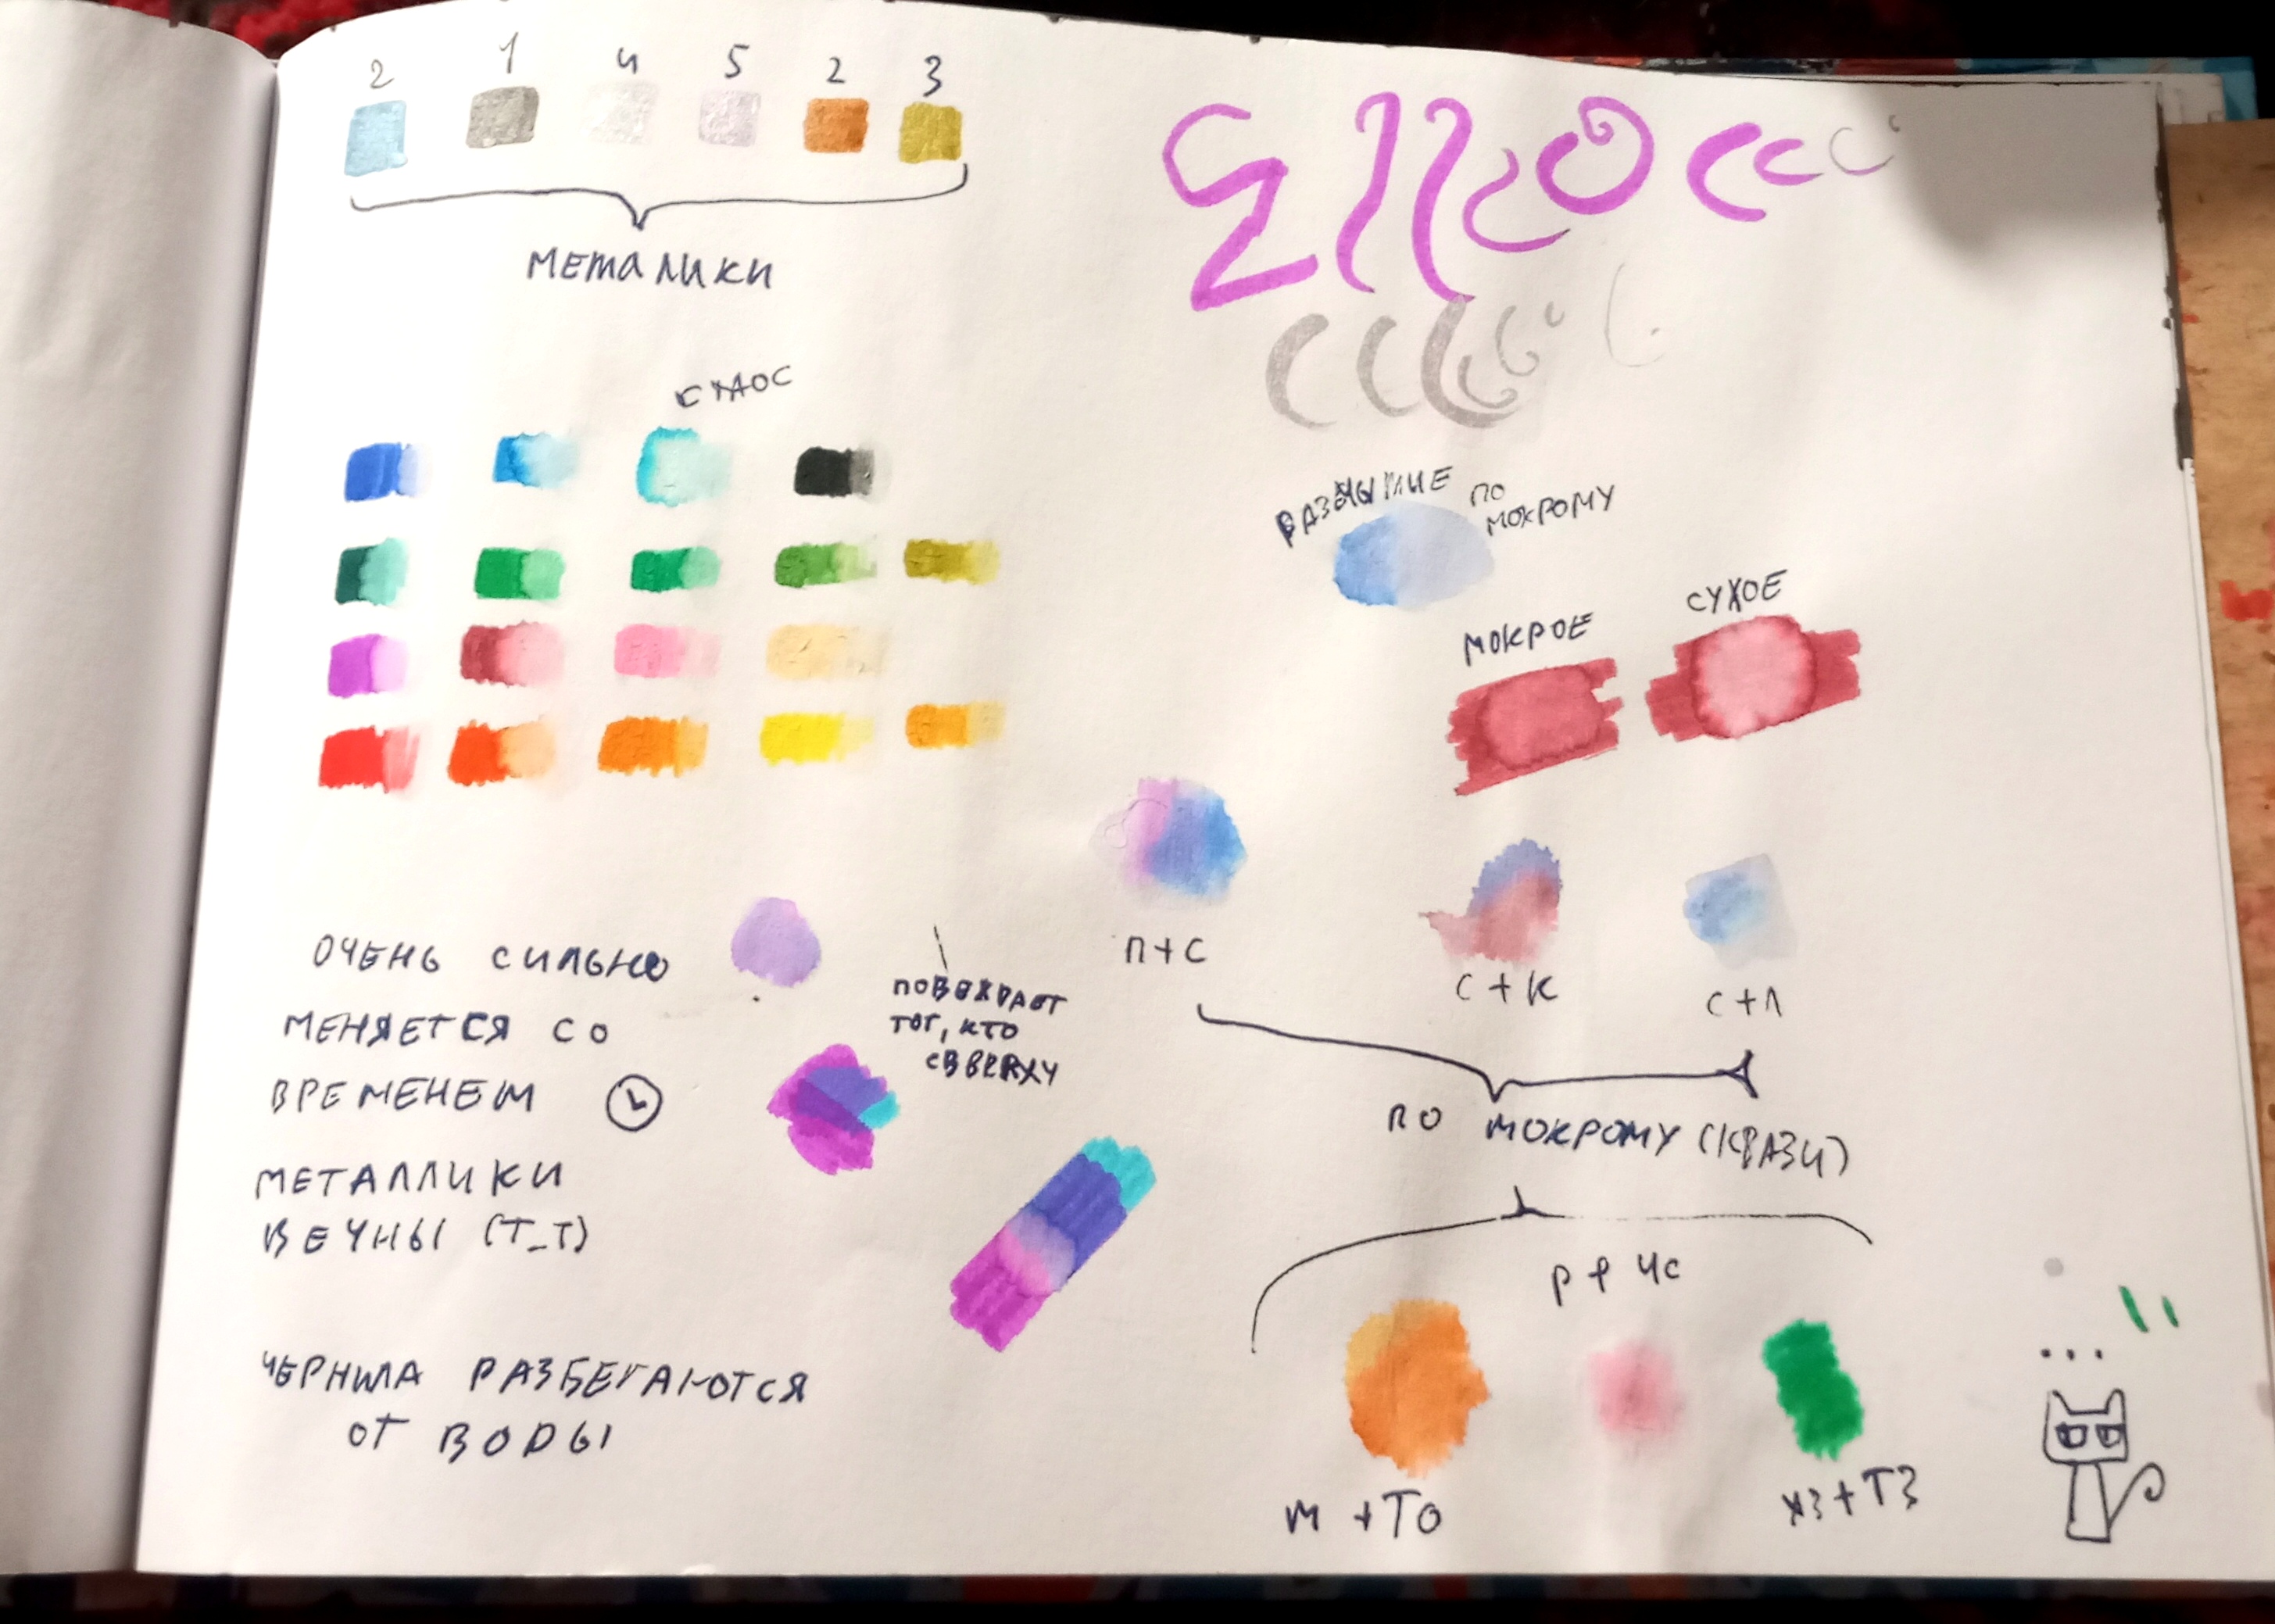 2 1 4 5 2 3
МЕТАЛИКИ
РАЗМЫТИЕ ПО
МОКРОМУ
МОКРОЕ
СУХОЕ
П+С
С+К
С+Л
ОЧЕНЬ СИЛЬНО
МЕНЯЕТСЯ СО
ВРЕМЕНЕМ
МЕТАЛЛИКИ
ВЕЧНЫ (Т_Т)
ЧЕРНИЛА РАЗБЕГАЮТСЯ
ОТ ВОДЫ
ТОТ, КТО
ПО МОКРОМУ (КРАЗИ)
Р+ЧС
М+ТО
ХЗ+ТЗ
...